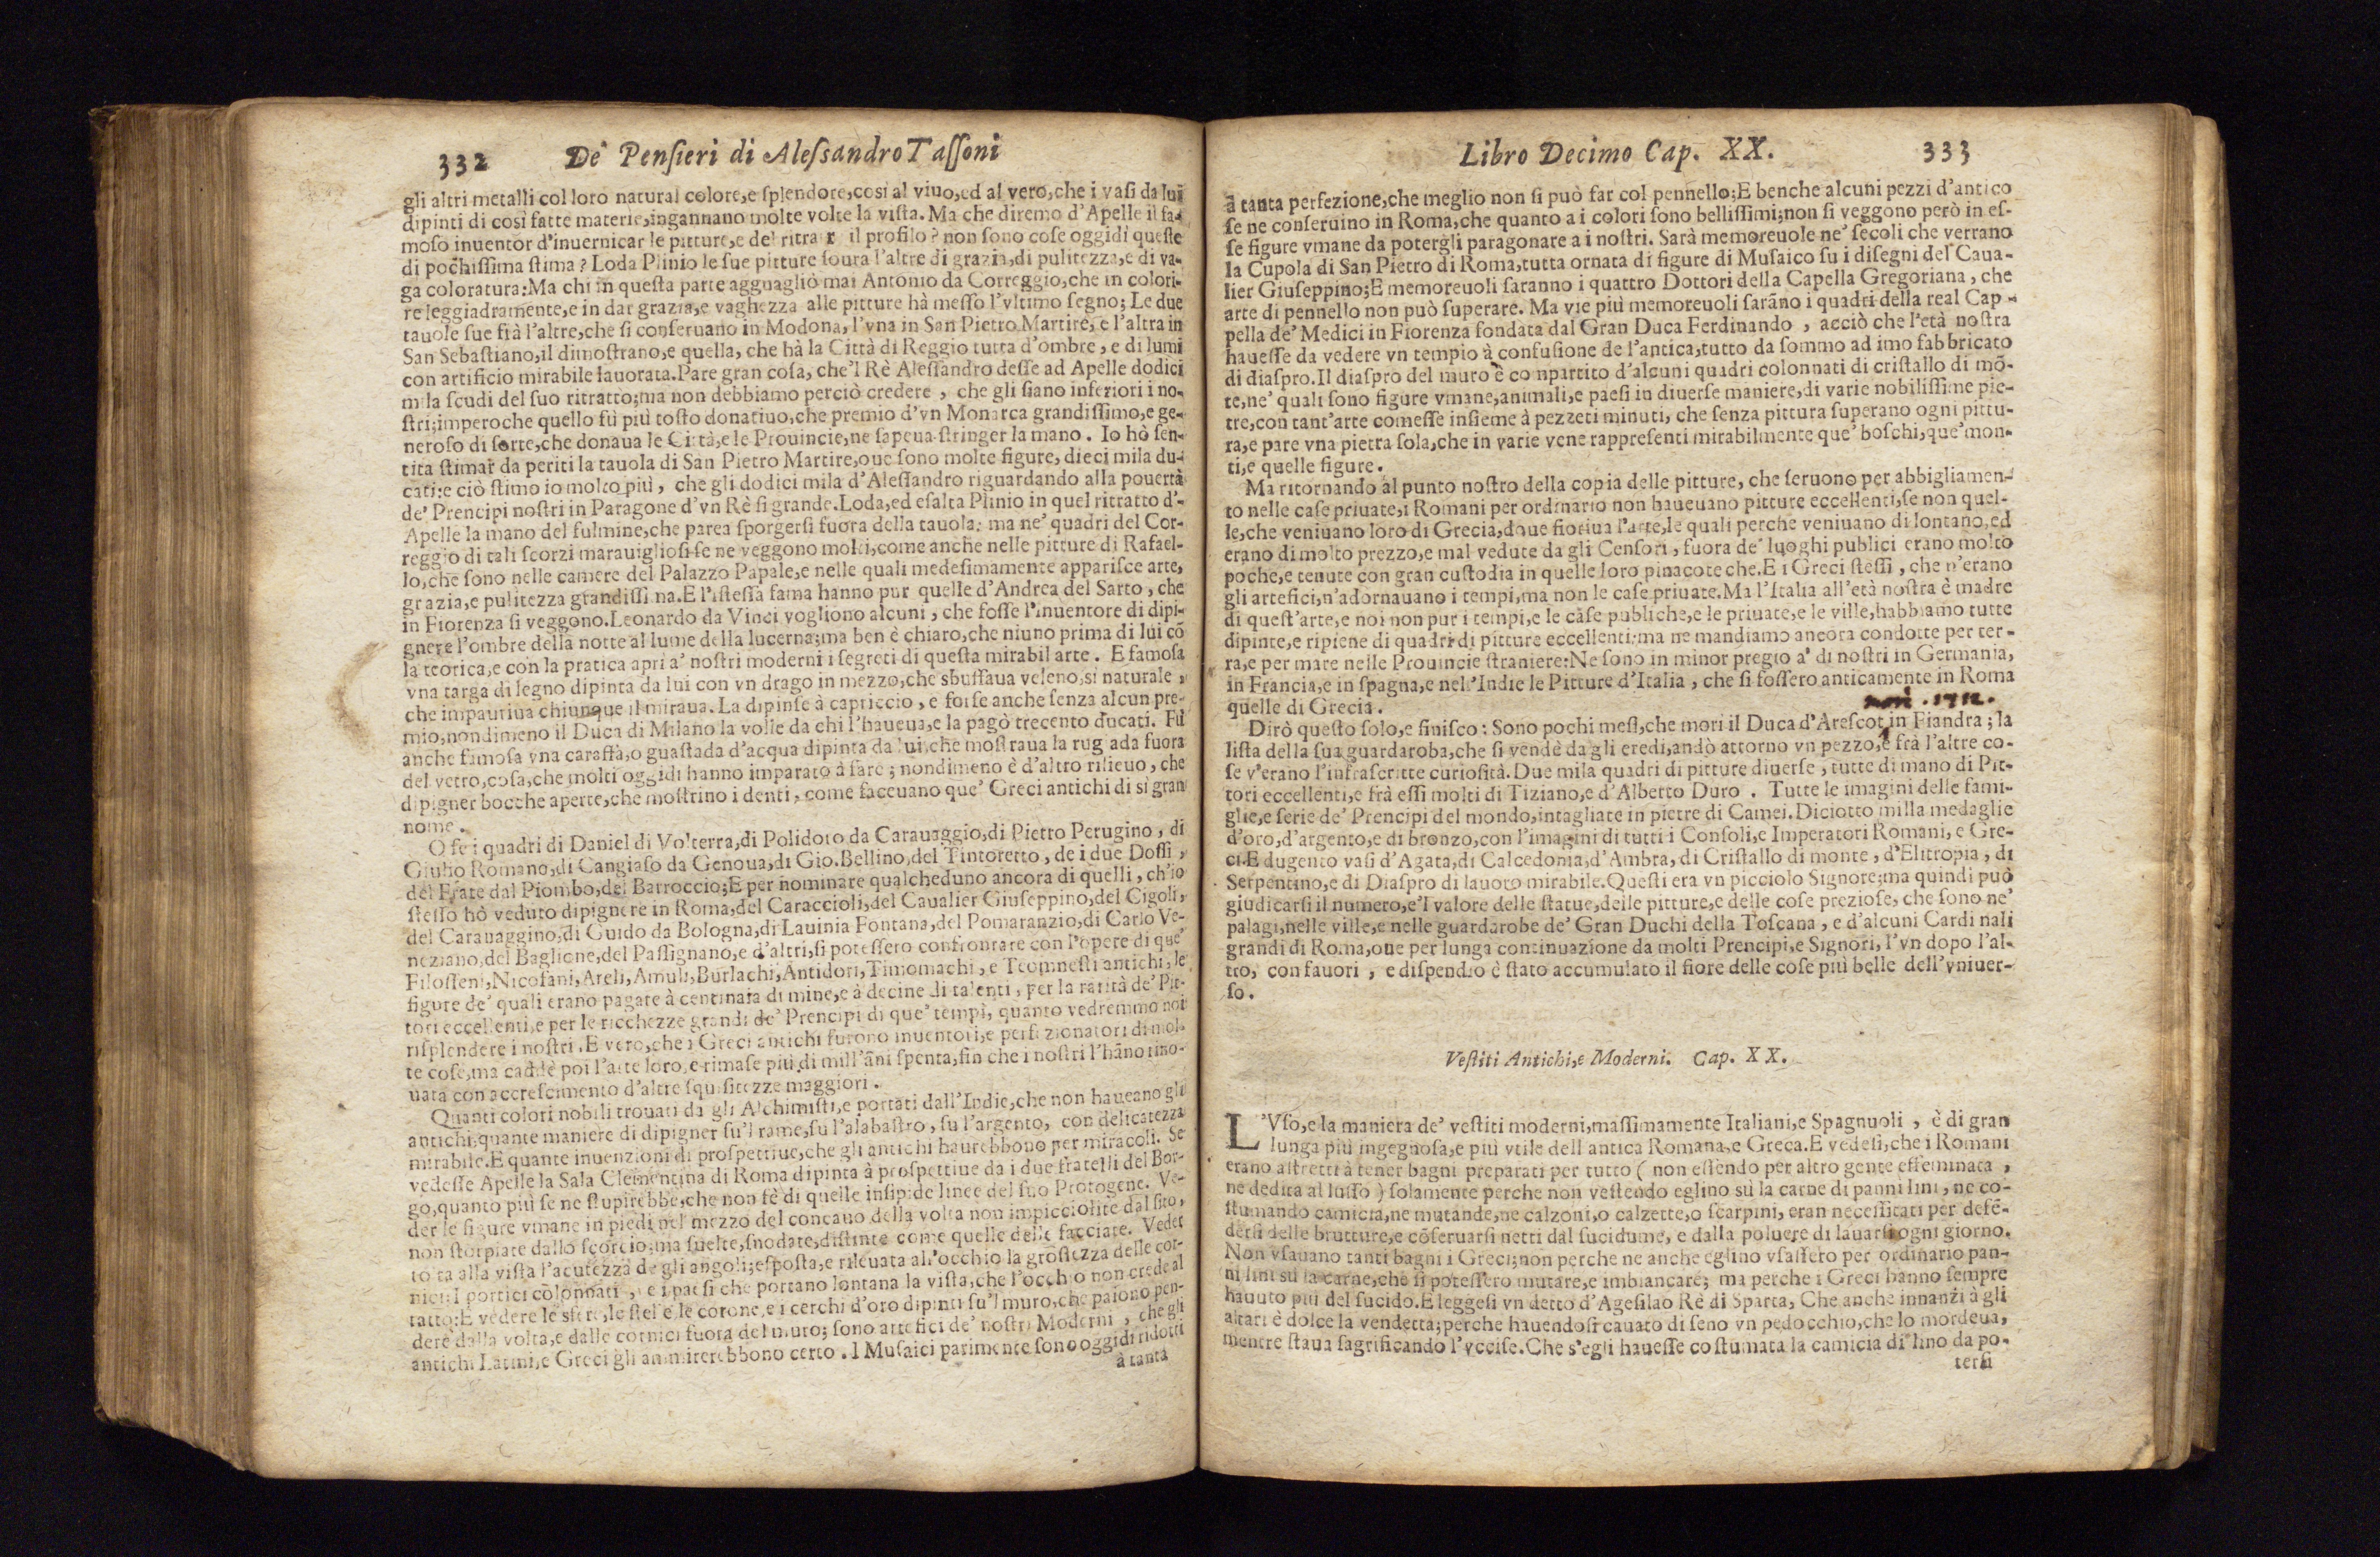 332 De' Pensieri di Alessandro Tassoni
gli altri metalli col loro natural colore,e splendore,così al viuo,ed al vero,che i vasi da lui
dipinti di così fatte materie,ingannano molte volte la vista. Ma che diremo d'Apelle il fa-
moso inuentor d'inuernicar le pitture,e del ritrar il profilo? non sono cose oggidì queste
di pochissima stima? Loda Plinio le sue pitture soura l'altre di grazia,di pulitezza,e di va-
ga coloratura:Ma chi in questa parte agguagliò mai Antonio da Correggio,che in colori-
re leggiadramente,e in dar grazia,e vaghezza alle pitture hà messo l'vltimo segno; Le due
tauole sue frà l'altre,che si conseruano in Modona, l'vna in San Pietro Martire, e l'altra in
San Sebastiano,il dimostrano,e quella, che hà la Città di Reggio tutta d'ombre, e di lumi
con artificio mirabile lauorata.Pare gran cosa, che'l Rè Alessandro desse ad Apelle dodici
mila scudi del suo ritratto;ma non debbiamo perciò credere, che gli siano inferiori i no-
stri;imperoche quello fù più tosto donatiuo,che premio d'vn Monarca grandissimo,e ge-
neroso di sorte,che donaua le Città,e le Prouincie,ne sapeua stringer la mano. Io hò sen-
tita stimar da periti la tauola di San Pietro Martire,oue sono molte figure, dieci mila du-
cati:e ciò stimo io molto più, che gli dodici mila d'Alessandro riguardando alla pouertà
de' Prencipi nostri in Paragone d'vn Rè sì grande.Loda,ed esalta Plinio in quel ritratto d'-
Apelle la mano del fulmine,che parea sporgersi fuora della tauola: ma ne' quadri del Cor-
reggio di tali scorzi marauigliosi se ne veggono molti,come anche nelle pitture di Rafael-
lo,che sono nelle camere del Palazzo Papale,e nelle quali medesimamente apparisce arte,
grazia,e pulitezza grandissima.E l'istessa fama hanno pur quelle d'Andrea del Sarto, che
in Fiorenza si veggono.Leonardo da Vinci vogliono alcuni, che fosse l'inuentore di dipi-
gnere l'ombre della notte al lume della lucerna;ma ben è chiaro,che niuno prima di lui cō
la teorica,e con la pratica aprì a' nostri moderni i segreti di questa mirabil arte. E famosa
vna targa di legno dipinta da lui con vn drago in mezzo,che sbuffaua veleno,sì naturale,
che impauriua chiunque il miraua. La dipinse à capriccio, e forse anche senza alcun pre-
mio,nondimeno il Duca di Milano la volse da chi l'haueua,e la pagò trecento ducati. Fù
anche famosa vna caraffa,o guastada d'acqua dipinta da lui,che mostraua la rugiada fuora
del vetro,cosa,che molti oggidì hanno imparato à fare; nondimeno è d'altro rilieuo, che
dipigner bocche aperte,che mostrino i denti, come faceuano que' Greci antichi di sì gran
nome.
O se i quadri di Daniel di Volterra,di Polidoro da Carauaggio,di Pietro Perugino, di
Giulio Romano,di Cangiaso da Genoua,di Gio.Bellino,del Tintoretto, de i due Dossi,
del Frate dal Piombo,del Barroccio;E per nominare qualcheduno ancora di quelli, ch'io
stesso hò veduto dipignere in Roma,del Caraccioli,del Caualier Giuseppino,del Cigoli,
del Carauaggino,di Guido da Bologna,di Lauinia Fontana,del Pomaranzio,di Carlo Ve-
neziano,del Baglione,del Passignano,e d'altri,si potessero confrontare con l'opere di que'
Filosseni,Nicofani,Areli,Amuli,Burlachi,Antidori,Timomachi, e Teomnesti antichi, le
figure de' quali erano pagate à centinaia di mine,e à decine di talenti, per la rarità de' Pit-
tori eccellenti,e per le ricchezze grandi de' Prencipi di que' tempi, quanto vedremmo noi
risplendere i nostri.E vero,che i Greci antichi furono inuentori,e perfezionatori di mol-
te cose,ma cadde poi l'arte loro,e rimase più di mill'āni spenta,fin che i nostri l'hāno rino-
uata con accrescimento d'altre squisitezze maggiori.
Quanti colori nobili trouati da gli Alchimisti,e portati dall'Indie,che non haueano gli
antichi;quante maniere di dipigner su'l rame,su l'alabastro, su l'argento, con delicatezza
mirabile.E quante inuenzioni di prospettiue,che gli antichi haurebbono per miracoli. Se
vedesse Apelle la Sala Clementina di Roma dipinta à prospettiue da i due fratelli del Bor-
go,quanto più se ne stupirebbe,che non fè di quelle insipide linee del suo Protogene. Ve-
der le figure vmane in piedi nel mezzo del concauo della volta non impicciolite dal sito,
non storpiate dallo scorcio;ma suelte,snodate,distinte come quelle delle facciate. Veder
tolta alla vista l'acutezza de gli angoli;esposta,e rileuata all'occhio la grossezza delle cor-
nici:I portici colonnati, e i paesi che portano lontana la vista,che l'occhio non crede al
tatto:E vedere le sfere,le stelle,le corone,e i cerchi d'oro dipinti su'l muro,che paiono pen-
dere dalla volta,e dalle cornici fuora del muro; sono artefici de' nostri Moderni, che gli
antichi Latini,e Greci gli ammirerebbono certo. I Musaici parimente sono oggidì ridotti
à tanta
Libro Decimo Cap. XX. 333
à tanta perfezione,che meglio non si può far col pennello;E benche alcuni pezzi d'antico
se ne conseruino in Roma,che quanto a i colori sono bellissimi;non si veggono però in es-
se figure vmane da potergli paragonare a i nostri. Sarà memoreuole ne' secoli che verrano
la Cupola di San Pietro di Roma,tutta ornata di figure di Musaico su i disegni del Caua-
lier Giuseppino;E memoreuoli saranno i quattro Dottori della Capella Gregoriana, che
arte di pennello non può superare. Ma vie più memoreuoli sarāno i quadri della real Cap-
pella de' Medici in Fiorenza fondata dal Gran Duca Ferdinando, acciò che l'età nostra
hauesse da vedere vn tempio à confusione de l'antica,tutto da sommo ad imo fabbricato
di diaspro.Il diaspro del muro è conpartito d'alcuni quadri colonnati di cristallo di mō-
te,ne' quali sono figure vmane,animali,e paesi in diuerse maniere,di varie nobilissime pie-
tre,con tant'arte comesse insieme à pezzeti minuti, che senza pittura superano ogni pittu-
ra,e pare vna pietra sola,che in varie vene rappresenti mirabilmente que' boschi,que'mon-
ti,e quelle figure.
Ma ritornando al punto nostro della copia delle pitture, che seruono per abbigliamen-
to nelle case priuate,i Romani per ordinario non haueuano pitture eccellenti,se non quel-
le,che veniuano loro di Grecia,doue fioriua l'arte,le quali perche veniuano di lontano,ed
erano di molto prezzo,e mal vedute da gli Censori, fuora de' luoghi publici erano molto
poche,e tenute con gran custodia in quelle loro pinacoteche.E i Greci stessi, che n'erano
gli artefici,n'adornauano i tempi,ma non le case priuate.Ma l'Italia all'età nostra è madre
di quest'arte,e noi non pur i tempi,e le case publiche,e le priuate,e le ville,habbiamo tutte
dipinte,e ripiene di quadri di pitture eccellenti:ma ne mandiamo ancora condotte per ter-
ra,e per mare nelle Prouincie straniere:Ne sono in minor pregio a' dì nostri in Germania,
in Francia,e in spagna,e nel'Indie le Pitture d'Italia, che si fossero anticamente in Roma
quelle di Grecia.
Dirò questo solo,e finisco: Sono pochi mesi,che morì il Duca d'Arescot in Fiandra; la
lista della sua guardaroba,che si vendè da gli eredi,andò attorno vn pezzo,e frà l'altre co-
se v'erano l'infrascritte curiosità.Due mila quadri di pitture diuerse, tutte di mano di Pit-
tori eccellenti,e frà essi molti di Tiziano,e d'Alberto Duro. Tutte le imagini delle fami-
glie,e serie de' Prencipi del mondo,intagliate in pietre di Camei.Diciotto milla medaglie
d'oro,d'argento,e di bronzo,con l'imagini di tutti i Consoli,e Imperatori Romani, e Gre-
ci.E dugento vasi d'Agata,di Calcedonia,d'Ambra, di Cristallo di monte, d'Elitropia, di
Serpentino,e di Diaspro di lauoro mirabile.Questi era vn picciolo Signore;ma quindi può
giudicarsi il numero,e'l valore delle statue,delle pitture,e delle cose preziose, che sono ne'
palagi,nelle ville,e nelle guardarobe de' Gran Duchi della Toscana, e d'alcuni Cardinali
grandi di Roma,oue per lunga continuazione da molti Prencipi,e Signori, l'vn dopo l'al-
tro, con fauori, e dispendio è stato accumulato il fiore delle cose più belle dell'vniuer-
so.
Vestiti Antichi,e Moderni. Cap. XX.
L'Vso,e la maniera de' vestiti moderni,massimamente Italiani,e Spagnuoli, è di gran
lunga più ingegnosa,e più vtile dell antica Romana,e Greca.E vedesi,che i Romani
erano astretti à tener bagni preparati per tutto (non essendo per altro gente effeminata,
ne dedita al lusso) solamente perche non vestendo eglino sù la carne di panni lini, ne co-
stumando camicia,ne mutande,ne calzoni,o calzette,o scarpini, eran necessitati per defē-
dersi delle brutture,e cōseruarsi netti dal sucidume, e dalla poluere di lauarsi ogni giorno.
Non vsauano tanti bagni i Greci;non perche ne anche eglino vsassero per ordinario pan-
ni lini sù la carne,che si potessero mutare,e imbiancare; ma perche i Greci hanno sempre
hauuto più del sucido.E leggesi vn detto d'Agesilao Rè di Sparta, Che anche innanzi à gli
altari è dolce la vendetta;perche hauendosi cauato di seno vn pedocchio,che lo mordeua,
mentre staua sagrificando l'vccise.Che s'egli hauesse costumata la camicia di lino da po-
tersi